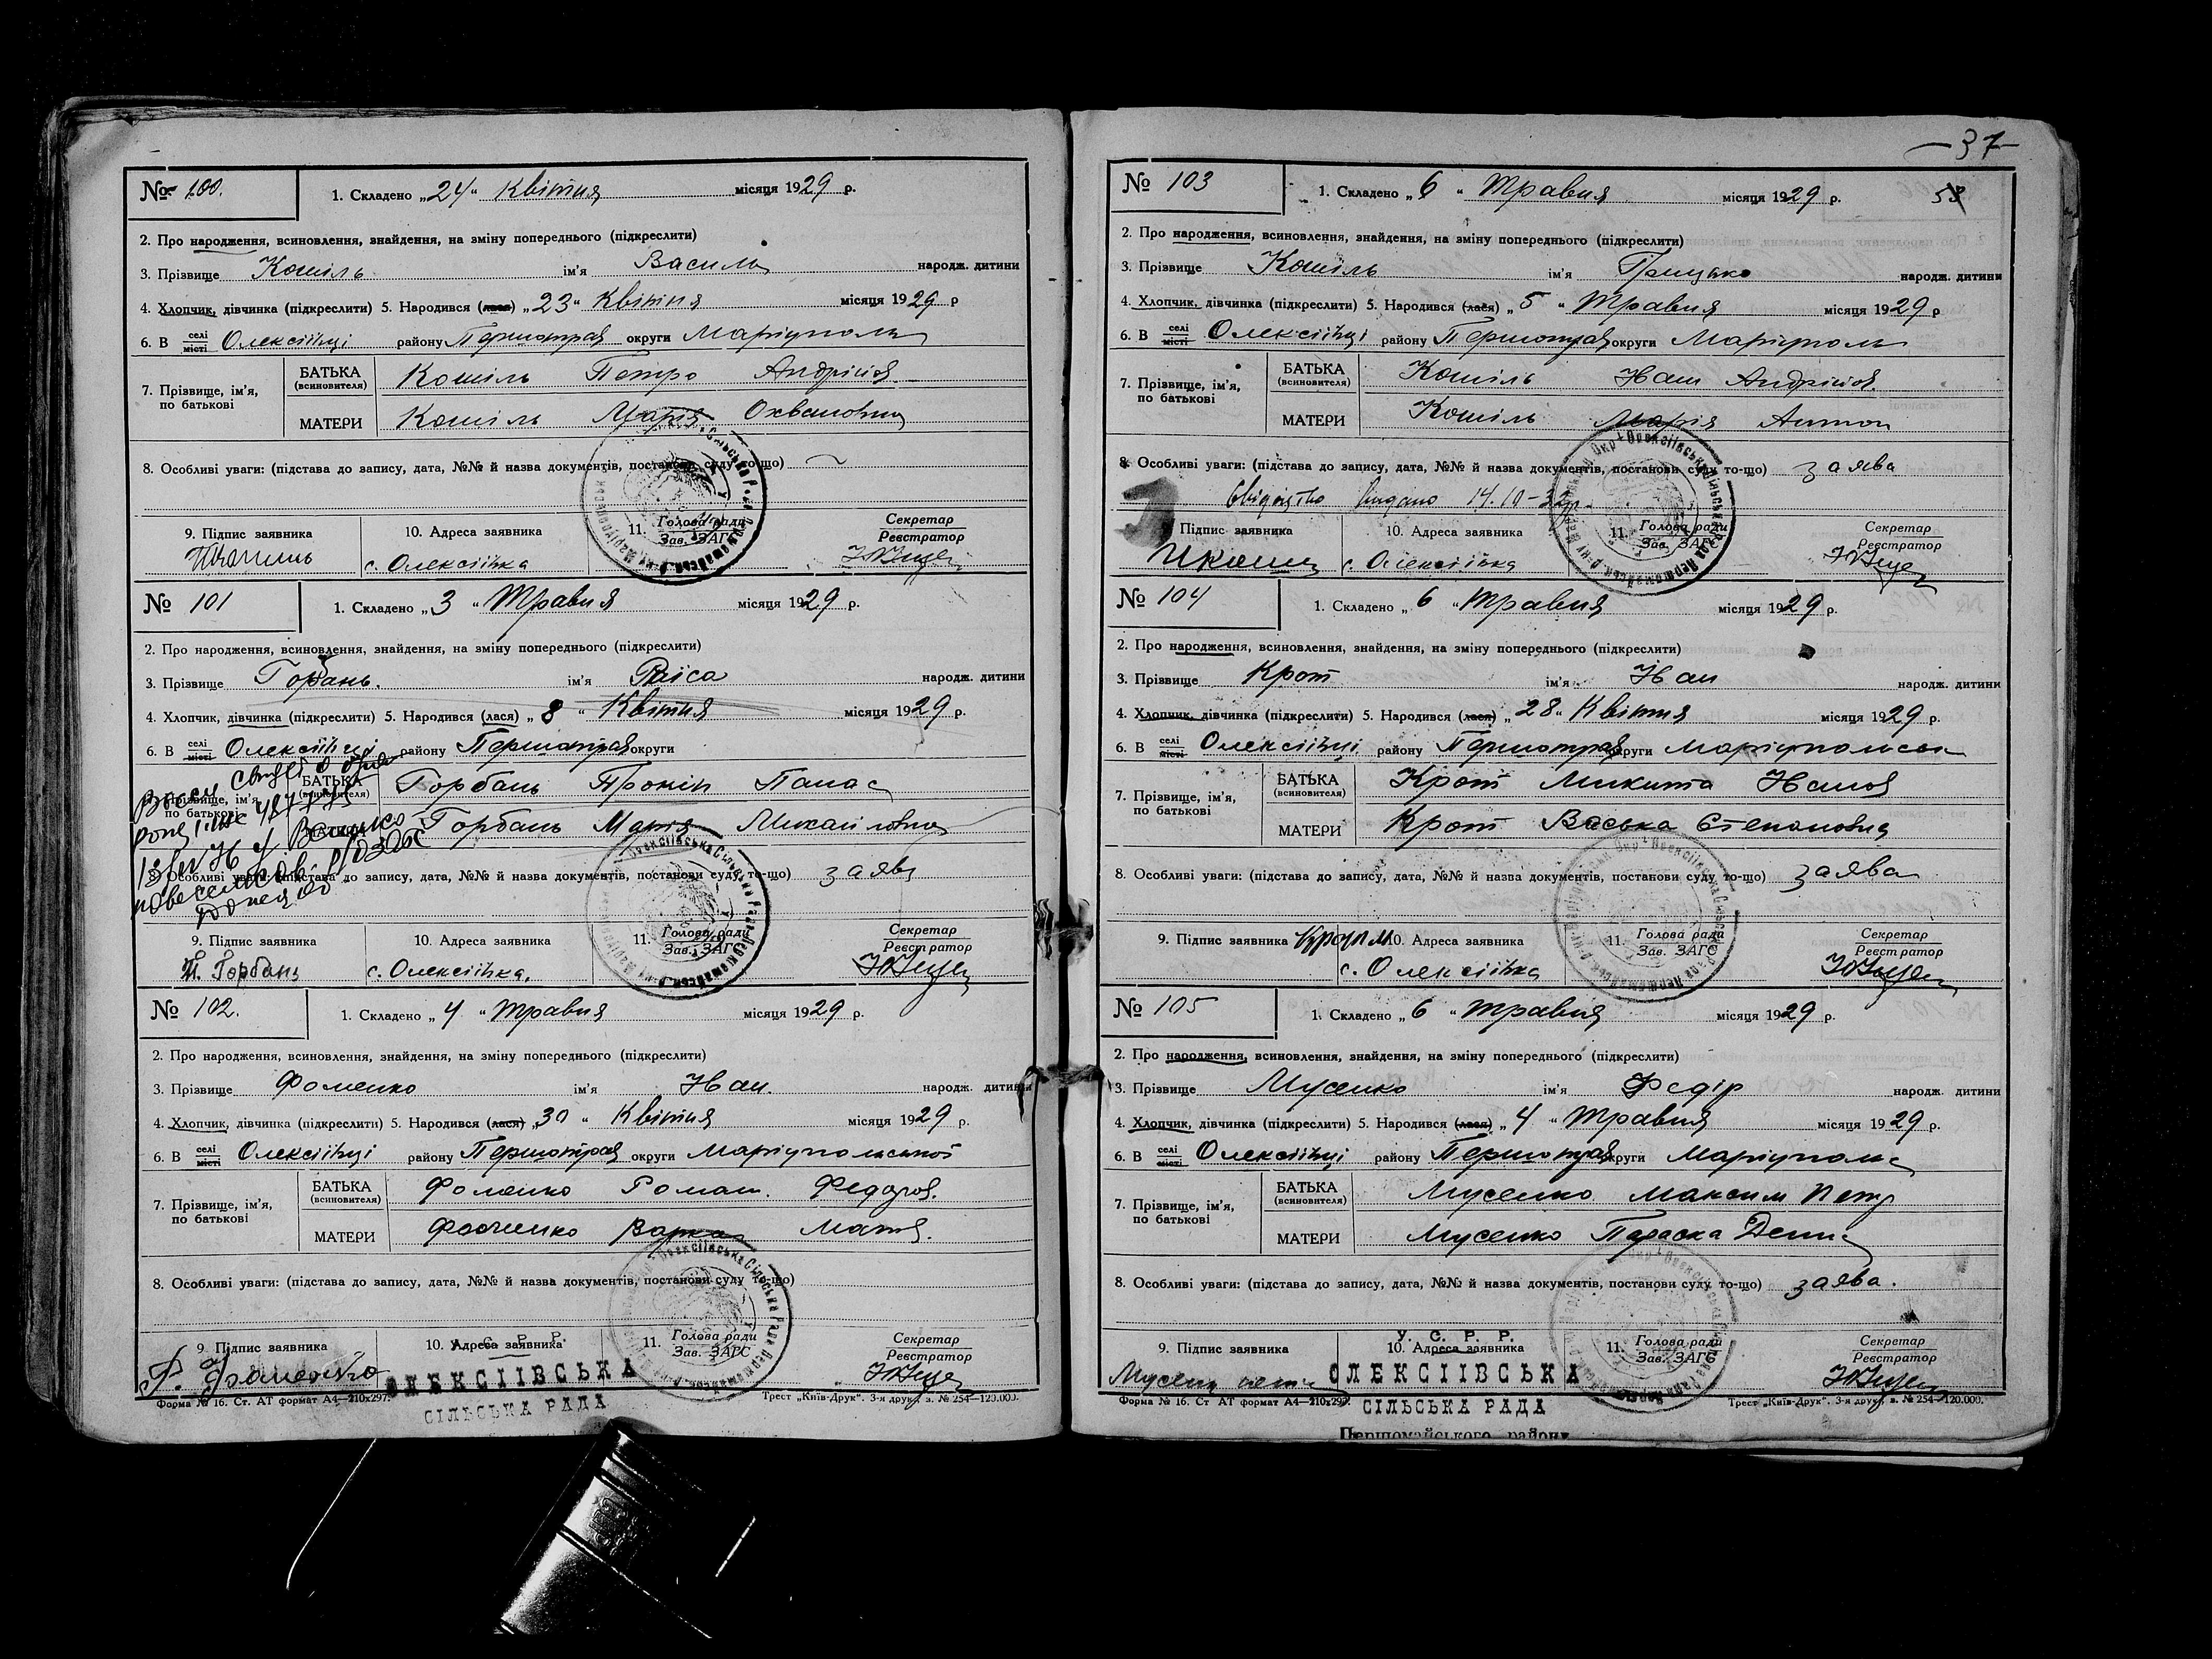 № 100.
1. Складено „24“ Квітня місяця 1929 р.
2. Про народження, всиновлення, знайдення, на зміну попереднього (підкреслити)
3. Прізвище Кошіль ім'я Василь народж. дитини
4. Хлопчик, дівчинка (підкреслити) 5. Народився (лася) „23“ Квітня місяця 1929 р
6. В селі місті Олексіївці району Першотрав округи Маріуполь
7. Прізвище, ім'я, по батькові
БАТЬКА (всиновителя) Кошіль Петро Андріїв.
МАТЕРИ Кошіль Марія
8. Особливі уваги: (підстава до запису, дата, №№ й назва документів, постанови суду то-що)
9. Підпис заявника
10. Адреса заявника
с. Олексіївка
11. Голова ради
Зав. ЗАГС
Секретар
Реєстратор
№ 101
1. Складено „3“ Травня місяця 1929 р.
2. Про народження, всиновлення, знайдення, на зміну попереднього (підкреслити)
3. Прізвище Горбань. ім'я Раїса народж. дитини
4. Хлопчик, дівчинка (підкреслити) 5. Народився (лася) „8“ Квітня місяця 1929 р.
6. В селі місті Олексіївці району Першотрав округи
7. Прізвище, ім'я, по батькові
БАТЬКА (всиновителя) Горбань Прокіп Панас
Горбань Марія Михайловна
8. Особливі уваги: (підстава до запису, дата, №№ й назва документів, постанови суду то-що) заява
9. Підпис заявника
П. Горбань
10. Адреса заявника
с. Олексіївка.
11. Голова ради
Зав. ЗАГС
Секретар
Реєстратор
№ 102.
1. Складено „4“ Травня місяця 1929 р.
2. Про народження, всиновлення, знайдення, на зміну попереднього (підкреслити)
3. Прізвище Фоменко ім'я Іван. народж. дитини
4. Хлопчик, дівчинка (підкреслити) 5. Народився (лася) „30“ Квітня місяця 1929 р.
6. В селі місті Олексіївці району Першотрав округи Маріупольської
7. Прізвище, ім'я, по батькові
БАТЬКА (всиновителя) Фоменко Роман. Федоров.
МАТЕРИ Фоменко Варка
8. Особливі уваги: (підстава до запису, дата, №№ й назва документів, постанови суду то-що)
9. Підпис заявника
Ф. Фоменко
10. Адреса заявника
У. С. Р. Р.
ОЛЕКСІЇВСЬКА
СІЛЬСЬКА РАДА
11. Голова ради
Зав. ЗАГС
Секретар
Реєстратор
Форма № 16. Ст. АТ формат А4—210х297.
Трест „Київ-Друк“. 3-я друк., з. № 254—120.000.
—37—
№ 103
1. Складено „6“ Травня місяця 1929 р.
2. Про народження, всиновлення, знайдення, на зміну попереднього (підкреслити)
3. Прізвище Кошіль ім'я Грицько народж. дитини
4. Хлопчик, дівчинка (підкреслити) 5. Народився (лася) „5“ Травня місяця 1929 р
6. В селі місті Олексіївці району Першотрав округи Маріуполь
7. Прізвище, ім'я, по батькові
БАТЬКА (всиновителя) Кошіль Іван Андріїв.
МАТЕРИ Кошіль Марія Антон
8. Особливі уваги: (підстава до запису, дата, №№ й назва документів, постанови суду то-що) заява
Свідоцтво видано 14.10-32р.
9. Підпис заявника
10. Адреса заявника
с. Олексіївка
11. Голова ради
Зав. ЗАГС
Секретар
Реєстратор
№ 104
1. Складено „6“ Травня місяця 1929 р.
2. Про народження, всиновлення, знайдення, на зміну попереднього (підкреслити)
3. Прізвище Крот ім'я Іван народж. дитини
4. Хлопчик, дівчинка (підкреслити) 5. Народився (лася) „28“ Квітня місяця 1929 р.
6. В селі місті Олексіївці району Першотрав округи Маріупольськ
7. Прізвище, ім'я, по батькові
БАТЬКА (всиновителя) Крот Микита Іванов
МАТЕРИ Крот Васька Степановна
8. Особливі уваги: (підстава до запису, дата, №№ й назва документів, постанови суду то-що) заява
9. Підпис заявника Крот М
10. Адреса заявника
с. Олексіївка
11. Голова ради
Зав. ЗАГС
Секретар
Реєстратор
№ 105
1. Складено „6“ Травня місяця 1929 р.
2. Про народження, всиновлення, знайдення, на зміну попереднього (підкреслити)
3. Прізвище Мусенко ім'я Федір народж. дитини
4. Хлопчик, дівчинка (підкреслити) 5. Народився (лася) „4“ Травня місяця 1929 р.
6. В селі місті Олексіївці району Першотрав округи Маріупольс
7. Прізвище, ім'я, по батькові
БАТЬКА (всиновителя) Мусенко Максим Петр
МАТЕРИ Мусенко Параска Денис
8. Особливі уваги: (підстава до запису, дата, №№ й назва документів, постанови суду то-що) заява.
9. Підпис заявника
10. Адреса заявника
У. С. Р. Р.
ОЛЕКСІЇВСЬКА
СІЛЬСЬКА РАДА
Першомайського району
11. Голова ради
Зав. ЗАГС
Секретар
Реєстратор
Форма № 16. Ст АТ формат А4—210х297.
Трест „Київ-Друк“. 3-я друк., з. № 254—120.000.